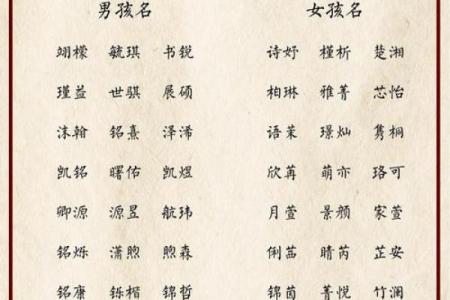 男孩名 女孩名
翊檬 毓琪 书锐 诗妤 槿析 楚湘
瑾益 世骐 展硕 柏琳 雅菁 芯怡
沫翰 铭熹 泽浠 语茉 璟灿 隽桐
凯铭 曙佑 凯煜 欣苒 萌亦 珞可
卿源 源昱 航玮 月萱 景颜 家萱
铭烁 潇煦 煦森 俐茁 晴芮 芷安
铭康 铄楷 锦哲 锦茵 菁悦 竹澜